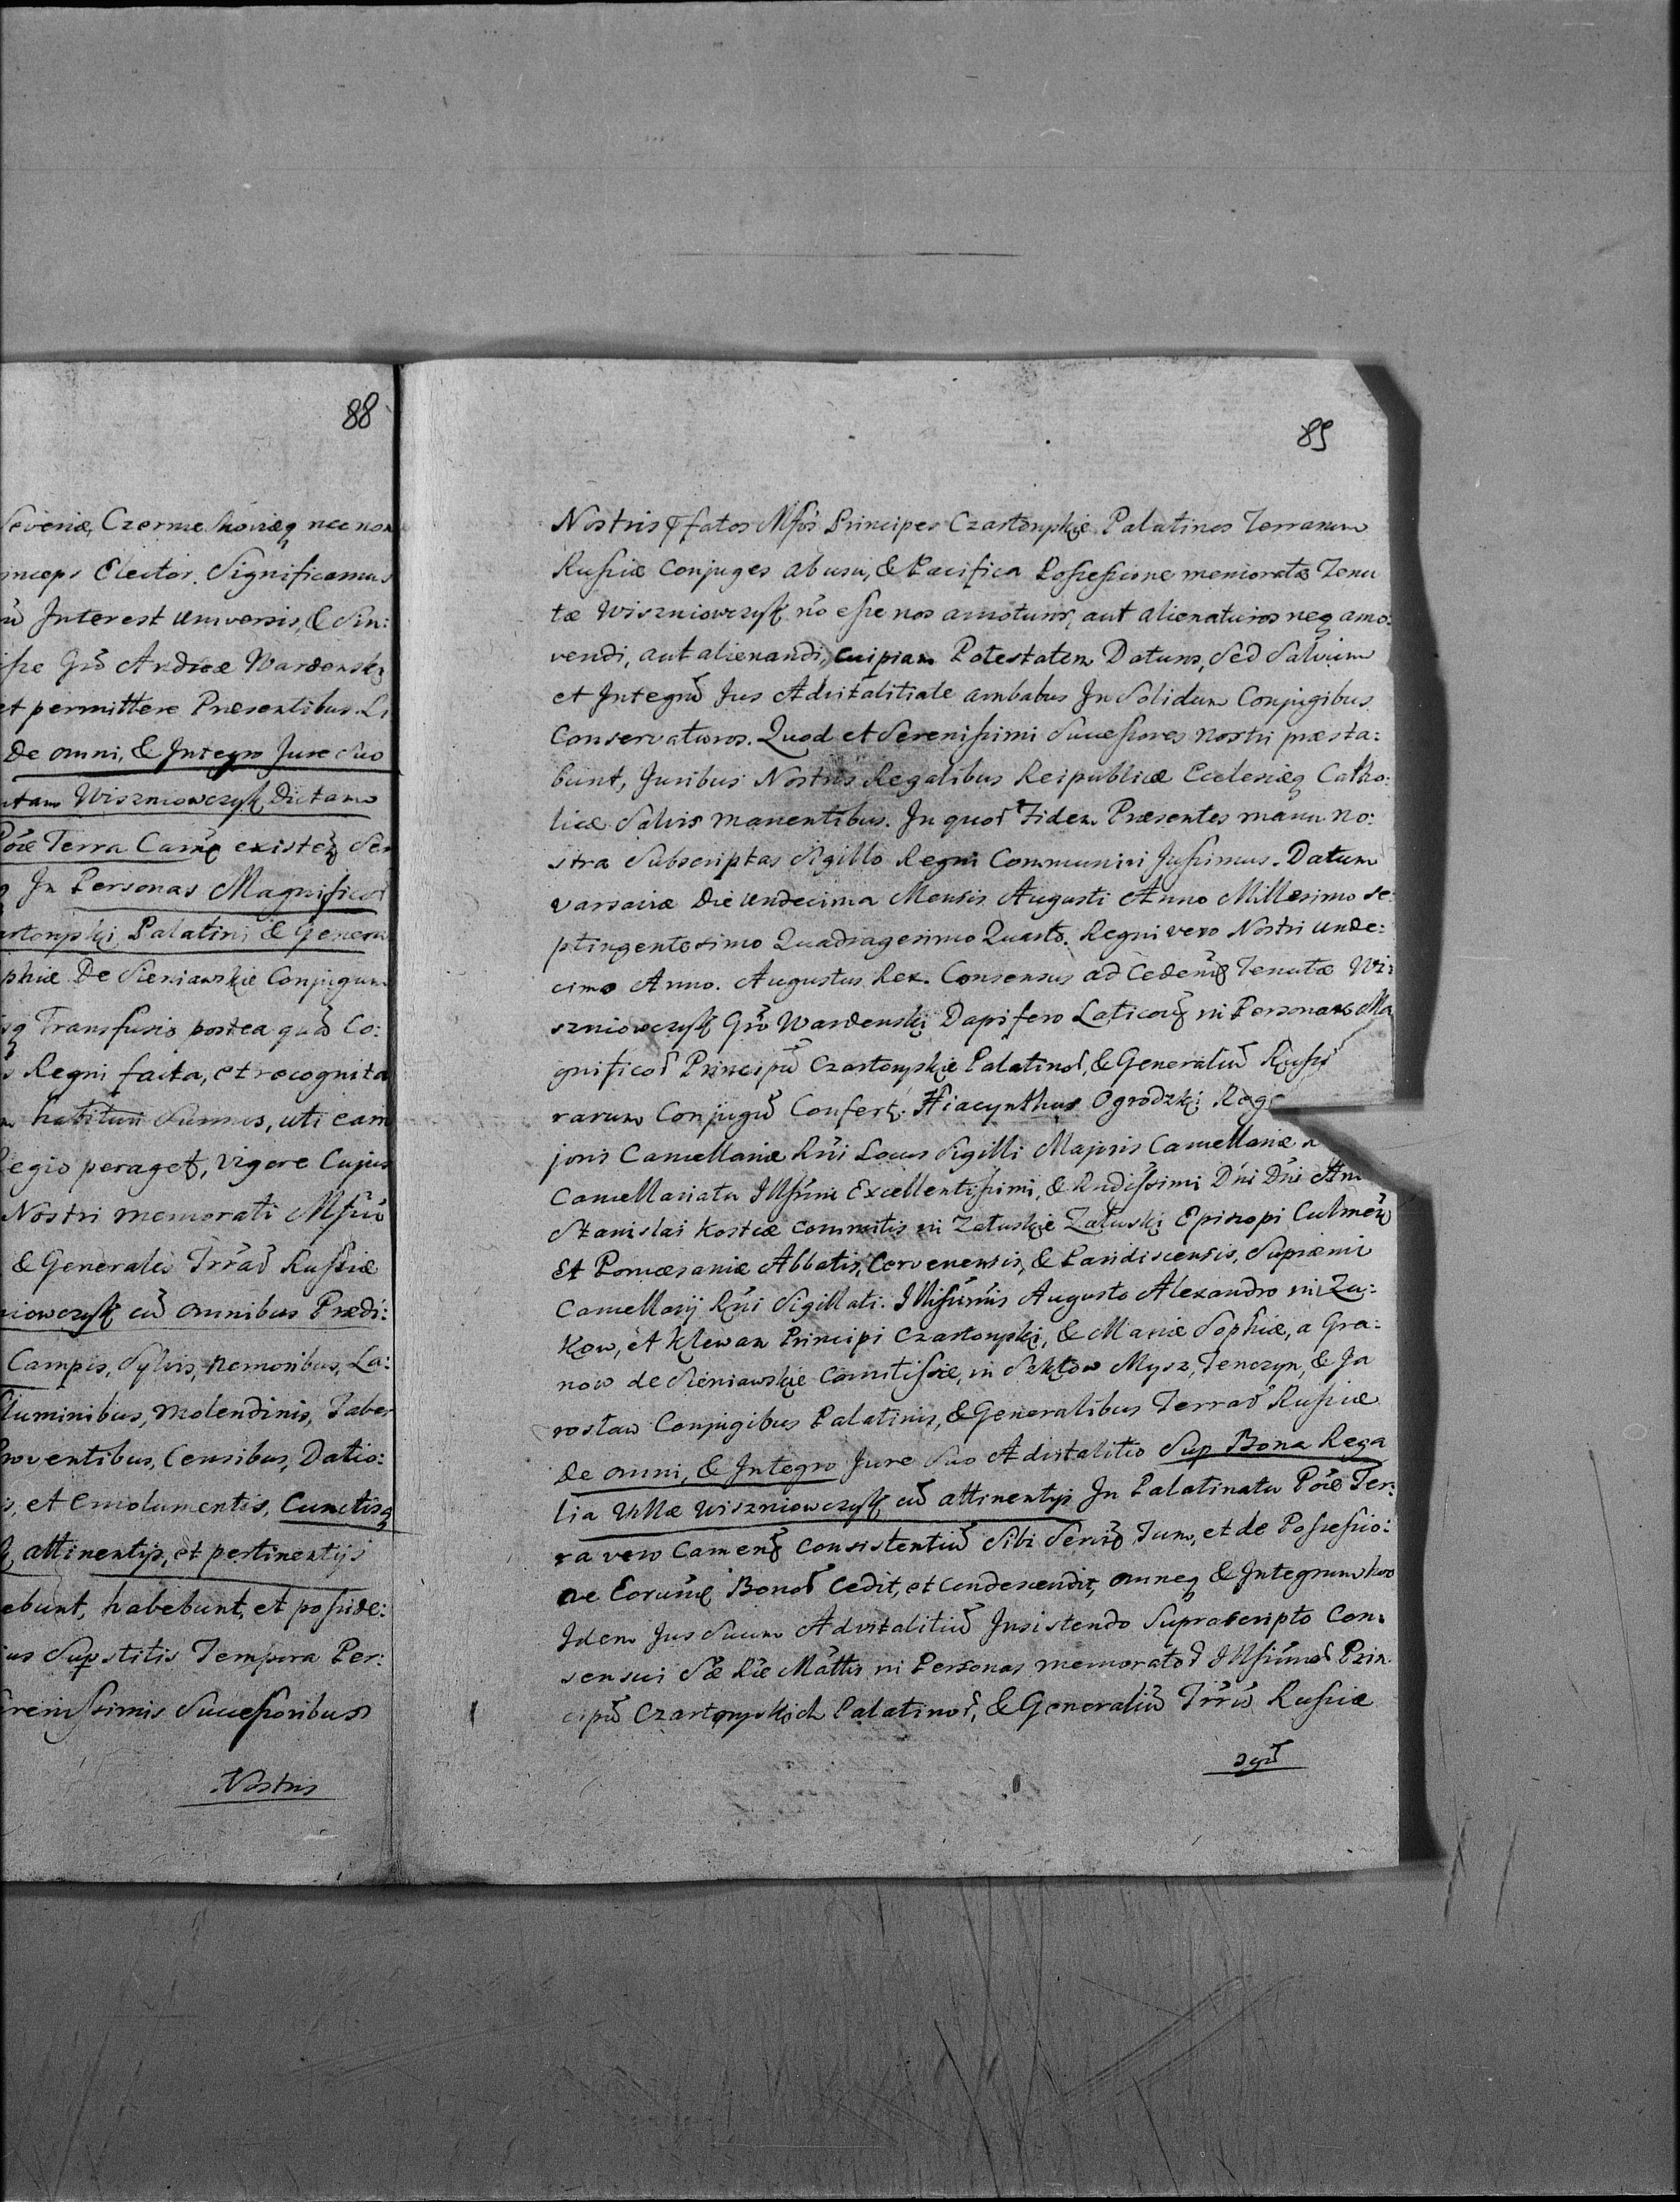 88
Severiæ, Czerniechoviæq nec non
inceps Elector. Significamus
Interest universis, & Sin:
Gnō Andreæ Wardenski
et permittere Præsentibus. Li
De omni, & Integro Jure Suo
utam Wiszniowczyk Dictam
Terra Camē existeñ Ser
In Personas Magnificoȓ
artoryski, Palatini & Genera
phiæ De Sieniawskie Conjugum
Transfusio postea quā Co:
Regni facta, et recognita
habituri Sumus, uti eam
Regio peraget, vigore Cujus
Nostri memorati
& Generalis Trraȓ Russiæ
niowczyk cū omnibus Prædi:
Campis, Sylvis, nemoribus, La:
luminibus, Molendinis, Taber
roventibus, Censibus, Datio:
et Emolumentis, Cunctisq
attinentijs, et pertinentijs
ebunt, habebunt, et posside:
us Supstitis Tempora Per:
renissimis Successoribus
Nostris
89
Nostris Pfatos Mfos Principes Czartoryskie Palatinos Terrarum
Russiæ Conjuges ab usu, & Pacifica Possessione memoratæ Tenu
tæ Wiszniowczyk nō esse nos amoturos, aut alienaturos neq amo:
vendi, aut alienandi, cuipiam Potestatem Daturos, Sed Salvum
et Integrū Jus Advitalitiale ambabus In Solidum Conjugibus
Conservaturos. Quod et Serenissimi Successores Nostri præsta:
bunt, Juribus Nostris Regalibus Reipublicæ Ecclesiæq Catho:
licæ Salvis manentibus. In quoȓ Fidem Præsentes manu no:
stra Subscriptas Sigillo Regni Communiri Jussimus. Datum
Varsaviæ Die Undecima Mensis Augusti Anno Millesimo Se:
ptingentesimo Quadragesimo Quarto. Regni vero Nostri Unde:
cimo Anno. Augustus Rex. Consensus ad Cedenđ Tenutæ Wi:
szniowczyk Gnō Wardenski Dapifero Laticov in Personas Ma
gnificoȓ Principū Czartoryskie Palatinoȓ, & Generaliū Russi
rarum Conjugū Confert. Hiacynthus Ogrodzki Reg
joris Cancellariæ Rni Locus Sigilli Majoris Cancellariæ
Cancellariatu Illsimi Excellentissimi, & Rndissimi Dni Dni An
Stanislai Kostcæ Commitis in Załuskie Załuski Episcopi Culmen
Et Pomesaniæ Abbatis, Cervenensis, & Paradiscensis, Supremi
Cancellarij Rni Sigillati. Illsimis Augusto Alexandro in Zu:
kow, et Klewan Principi Czartoryski, & Mariæ Sophiæ, a Gra:
now de Sieniawskie Comitissæ, in Szkłow Mysz, Tenczyn, & Ja
rosław Conjugibus Palatinis, & Generalibus Terraȓ Russiæ
De omni, & Integro Jure Suo Advitalitio Sup Bona Rega
lia Villæ Wiszniowczyk cū attinentijs In Palatinatu Poœ Ter:
ra vero Camenz Consistentiū Sibi Servin Tum, et de Possessio:
ne Eorunđ Bonoȓ Cedit, et Condescendit, omneq & Integrum hoc
Idem Jus Suum Advitalitiū Insistendo Suprascripto Con:
sensui Sæ Ræ Mattis in Personas memoratoȓ Illsimoȓ Prin
cipū Czartoryskich Palatinoȓ, & Generaliū Trris Russiæ